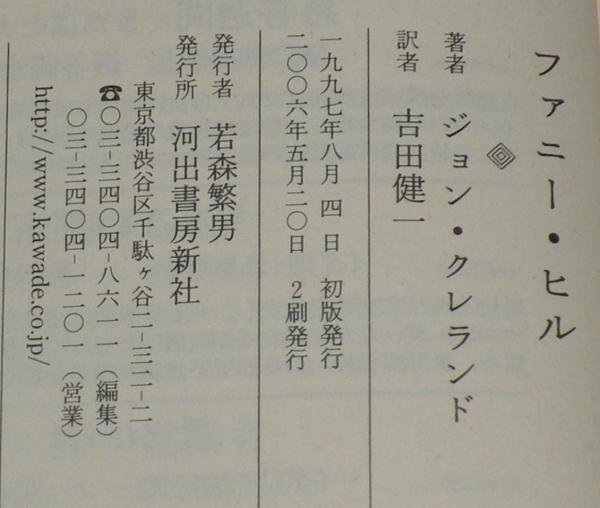 ファニー・ヒル
著者 ジョン・クレランド
訳者 吉田健一
一九九七年八月 四 日 初版発行
二〇〇六年五月二〇日 2刷発行
発行者 若森繁男
発行所 河出書房新社
東京都渋谷区千駄ヶ谷二-三二-二
☎〇三-三四〇四-八六一一(編集)
〇三-三四〇四-一二〇一(営業)
http://www.kawade.co.jp/